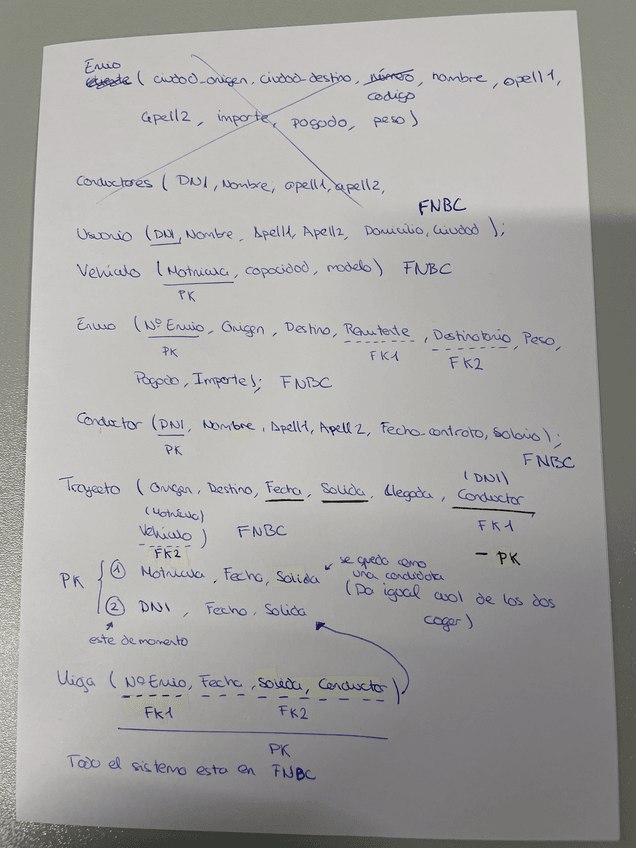 Envio
( ciudad_origen, ciudad_destino, número, nombre, apell1,
codigo
apell2, importe, pagado, peso)
Conductores ( DNI, Nombre, apell1, apell2,
FNBC
Usuario (DNI, Nombre, Apell1, Apell2, Domicilio, Ciudad );
Vehículo (Matricula, capacidad, modelo) FNBC
PK
Envio (Nº Envio, Origen, Destino, Remitente, Destinatario, Peso,
PK FK1 FK2
Pagado, Importe); FNBC
Conductor (DNI, Nombre, Apell1, Apell2, Fecha_contrato, Salario);
PK
FNBC
Trayecto (Origen, Destino, Fecha, Salida, llegada, Conductor
(DNI)
(Matrícula)
FK1
Vehículo ) FNBC
FK2
- PK
PK { ① Matricula, Fecha, Salida
se queda como una candidata
② DNI, Fecha, Salida
(Da igual cual de los dos coger)
este de momento
Lliga (Nº Envio, Fecha, Salida, Conductor)
FK1 FK2
PK
Todo el sistema esta en FNBC